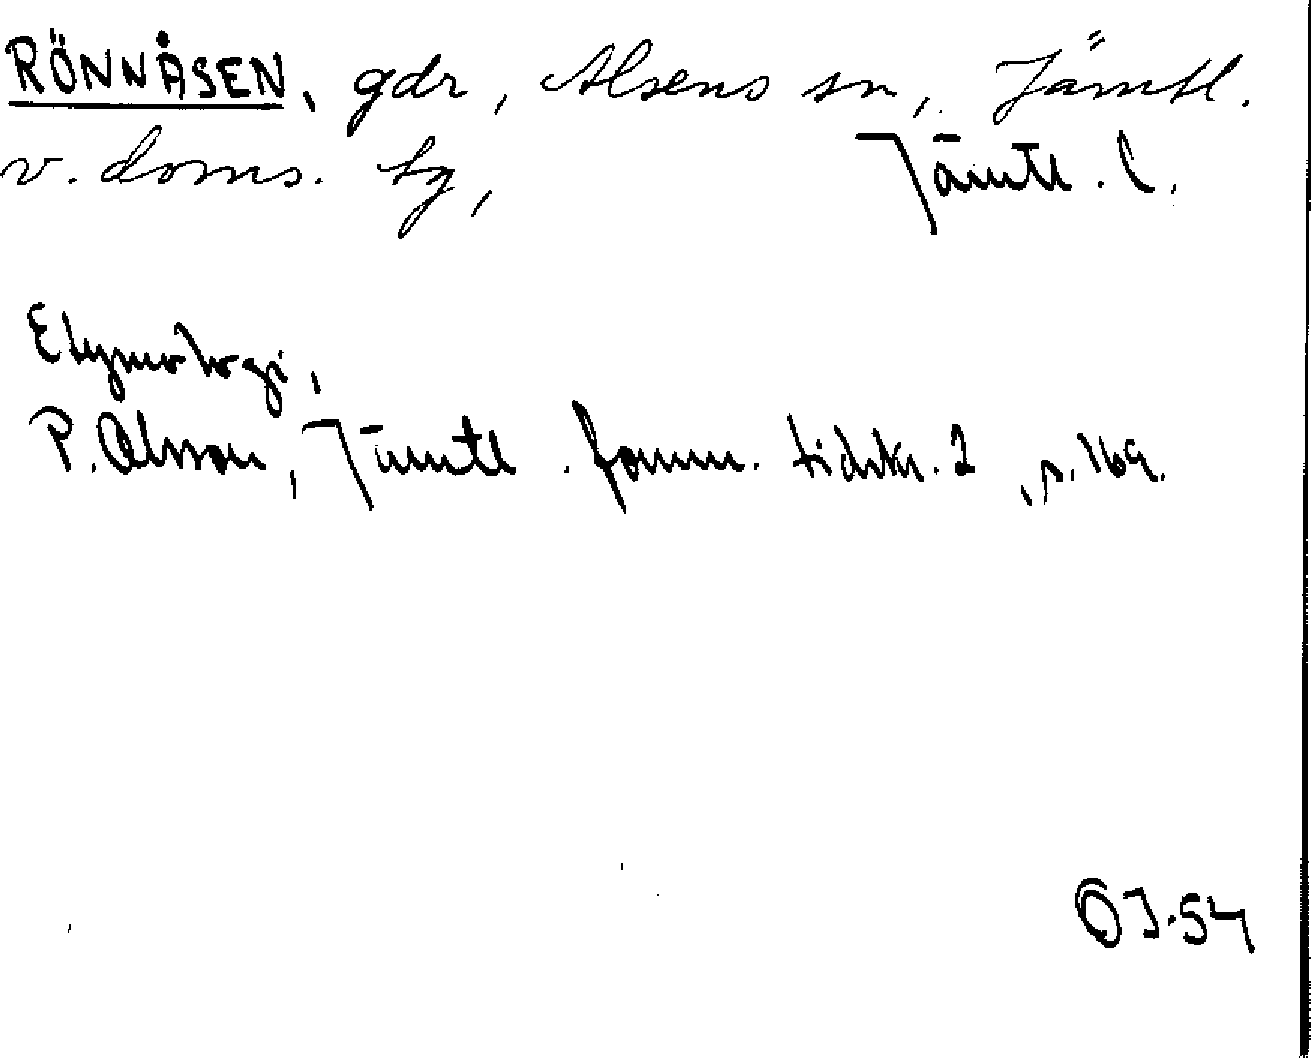 RÖNNÅSEN, gdr, Alsens sn, Jämtl.
v. doms. tg, Jämtl. l.
Etymologi,
P. Olsson, Jämtl. fornm. tidskr. 2, s. 169.
OJ.54